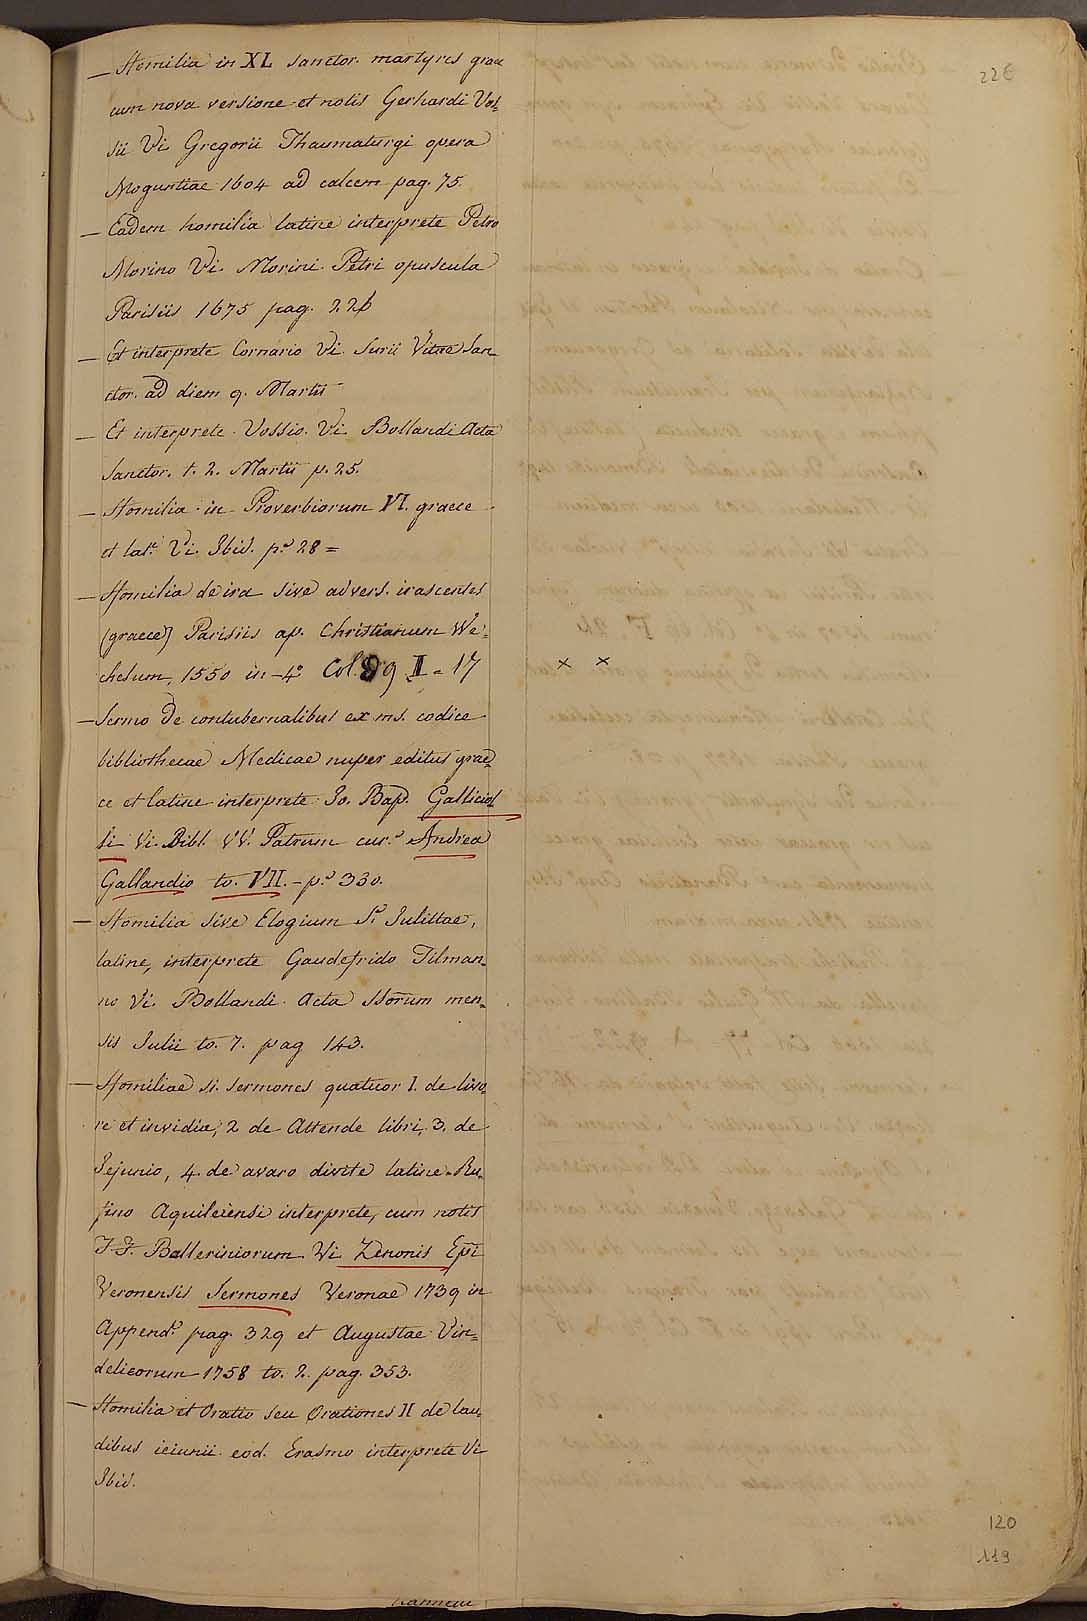 226
— Homilia in XL sanctor. martyres graece
cum nova versione et notis Gerhardi Vos-
sii Vi Gregorii Thaumaturgi opera
Moguntiae 1604 ad calcem pag. 75.
— Eadem homilia latine interprete Petro
Morino Vi. Morini Petri opuscula
Parisiis 1675 pag. 226
— Et interprete Cornario Vi. Surii Vitae San-
ctor. ad diem 9. Martii
— Et interprete Vossio. Vi. Bollandi Acta
Sanctor. t. 2. Martii p. 25.
— Homilia in Proverbiorum VI. graece
et lat.e Vi. Ibid. p.a 28 =
— Homilia de ira sive advers. irascentes
(graece) Parisiis ap. Christianum We-
chelum, 1550 in-4.o Col. 89 I = 17 × ×
— Sermo de contubernalibus ex ms. codice
bibliothecae Medicae nuper editus grae-
ce et latine interprete Io. Bap. Galliciol-
li Vi. Bibl. VV. Patrum cur.e Andrea
Gallandio to. VII. - p.a 330.
— Homilia sive Elogium S.e Julittae,
latine, interprete Gaudefrido Tilman-
no Vi. Bollandi Acta SSorum men-
sis Julii to. 7. pag 143.
— Homiliae si. sermones quatuor 1. de livo-
re et invidia, 2 de Attende libri, 3. de
Jejunio, 4. de avaro divite latine Ru-
fino Aquileiensi interprete, cum notis
J. J. Balleriniorum Vi Zenonis Epi
Veronensis Sermones Veronae 1739 in
Append.e pag. 329 et Augustae Vin-
delicorum 1758 to. 2. pag. 353.
— Homilia et Oratio seu Orationes II de lau-
dibus ieiunii eod. Erasmo interprete Vi
Ibid.
120
119